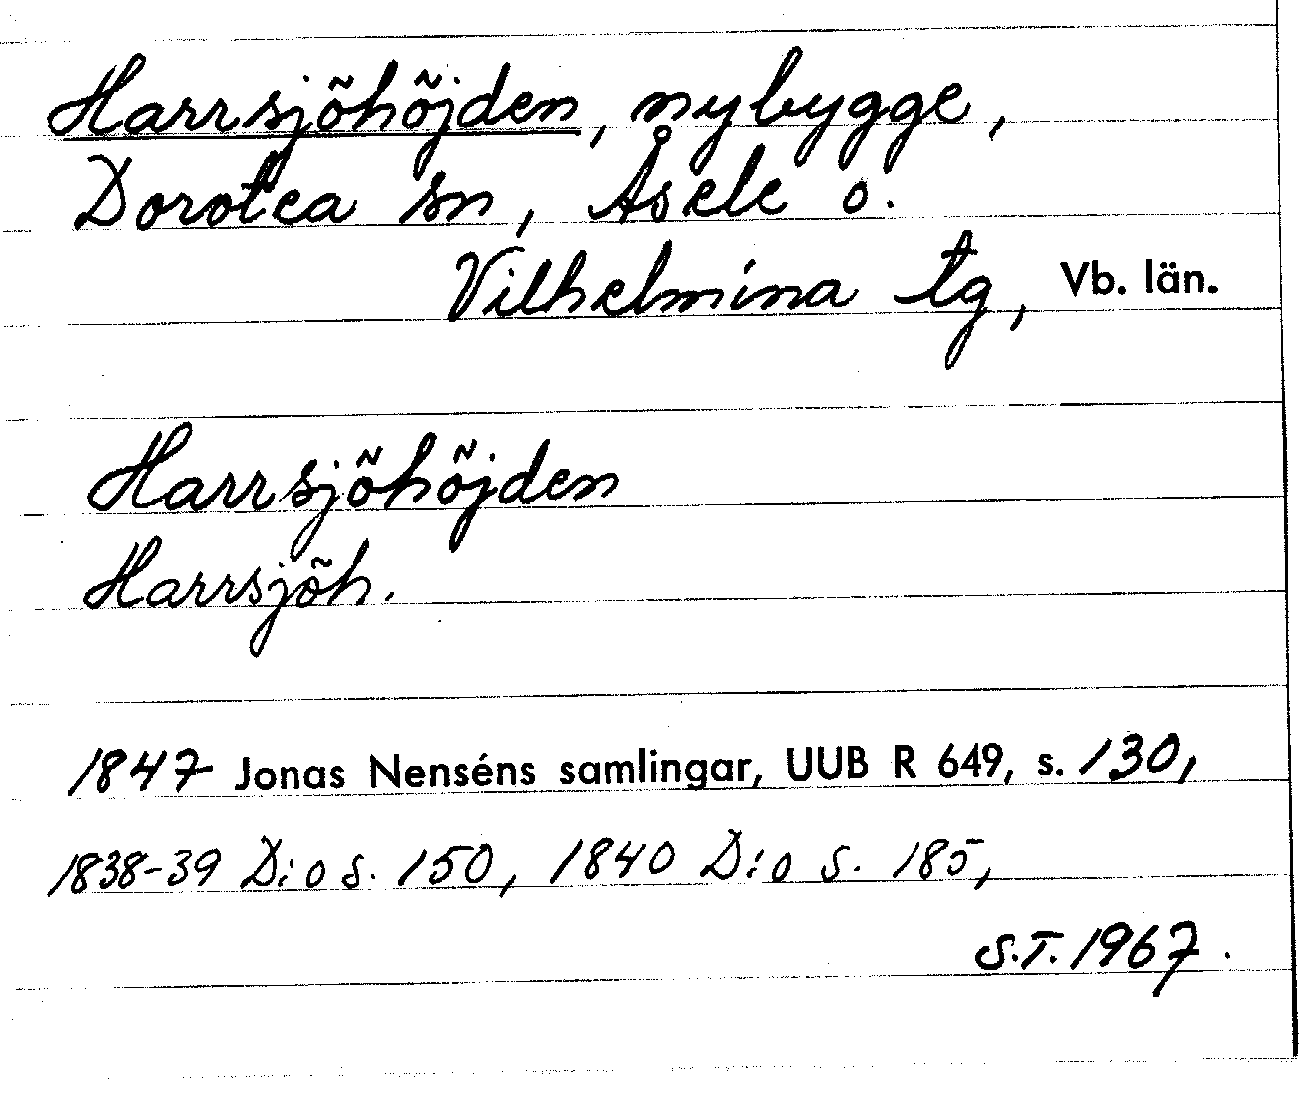 Harrsjöhöjden, nybygge,
Dorotea sn, Åsele o.
Vilhelmina tg, Vb. län.
Harrsjöhöjden
Harrsjöh.
1847 Jonas Nenséns samlingar, UUB R 649, s. 130,
1838-39 D:o s. 150, 1840 D:o s. 185,
S.T. 1967.